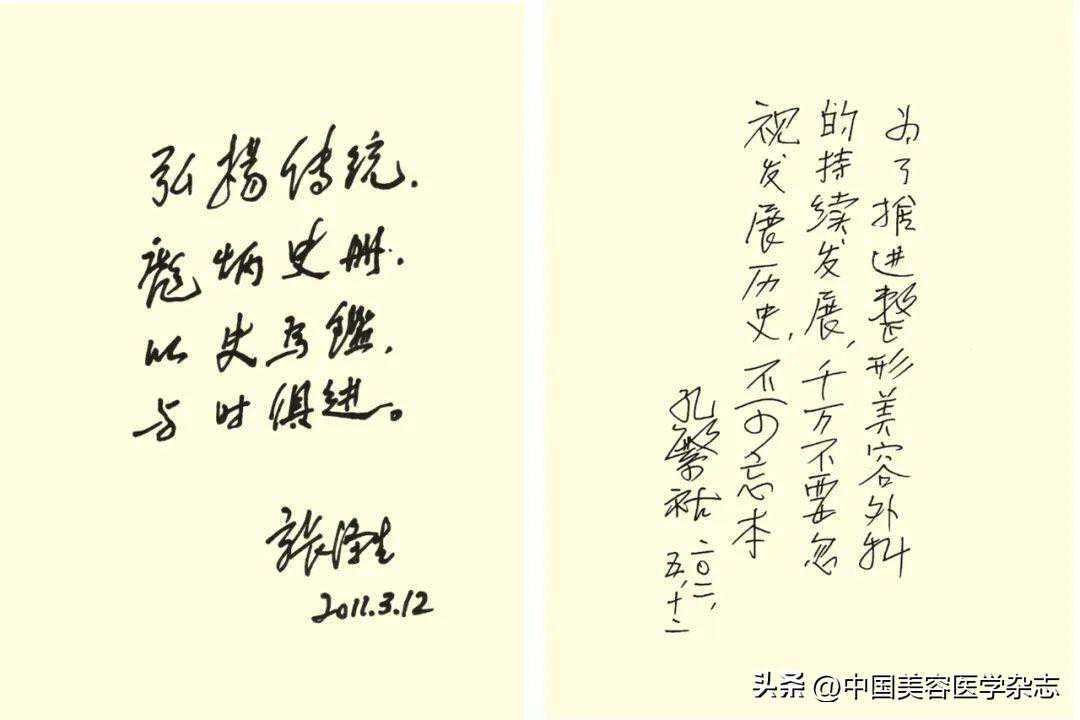 弘揚传统.
彪炳史册.
以史为鑑.
与时俱进。
張涤生
2011.3.12
为了推进整形美容外科
的持续发展,千万不要忽
视发展历史,不可忘本
孔繁祜
二〇一一,
五,十二
头条 @中国美容医学杂志